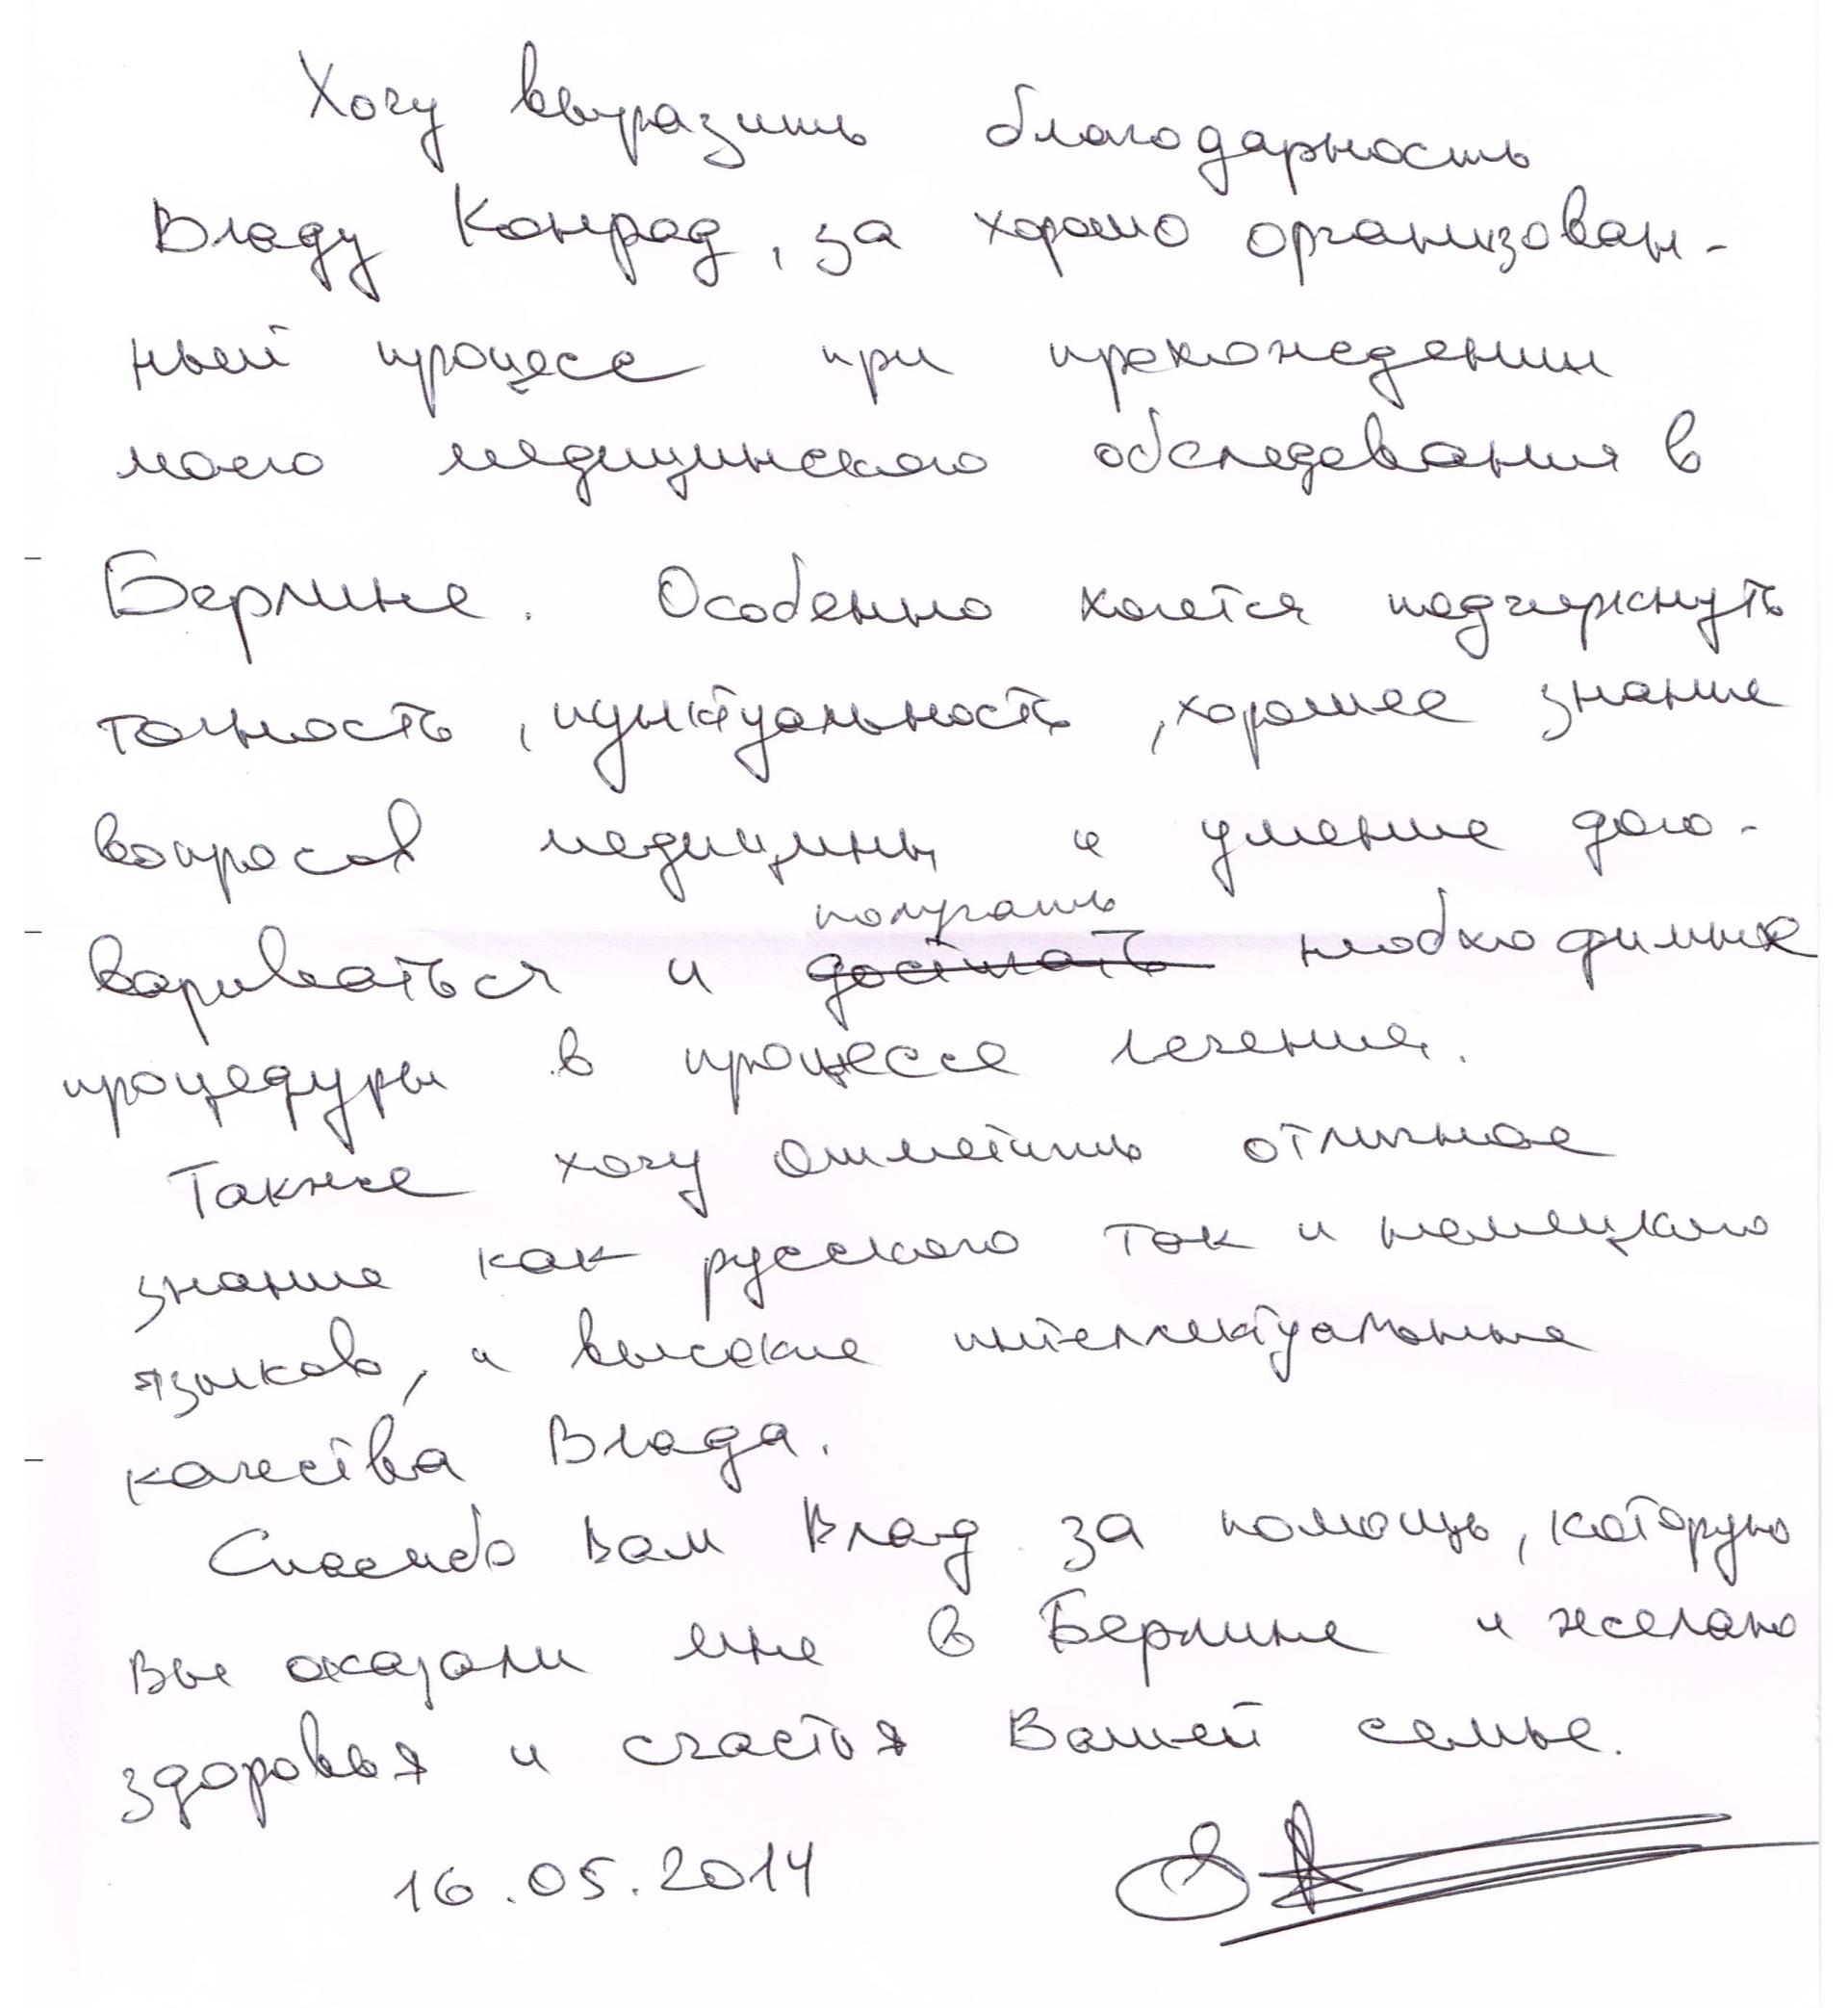 Хочу выразить благодарность
Владу Конрад, за хорошо организован-
ный процесс при прохождении
моего медицинского обследования в
Берлине. Особенно хочется подчеркнуть
точность, пунктуальность, хорошее знание
вопросов медицины и умение дого-
получать
вариваться и необходимые
процедуры в процессе лечения.
Также хочу отметить отличное
знание как русского так и немецкого
языков, и высокие интеллектуальные
качества Влада.
Спасибо Вам Влад за помощь, которую
Вы оказали мне в Берлине и желаю
здоровья и счастья Вашей семье.
16.05.2014